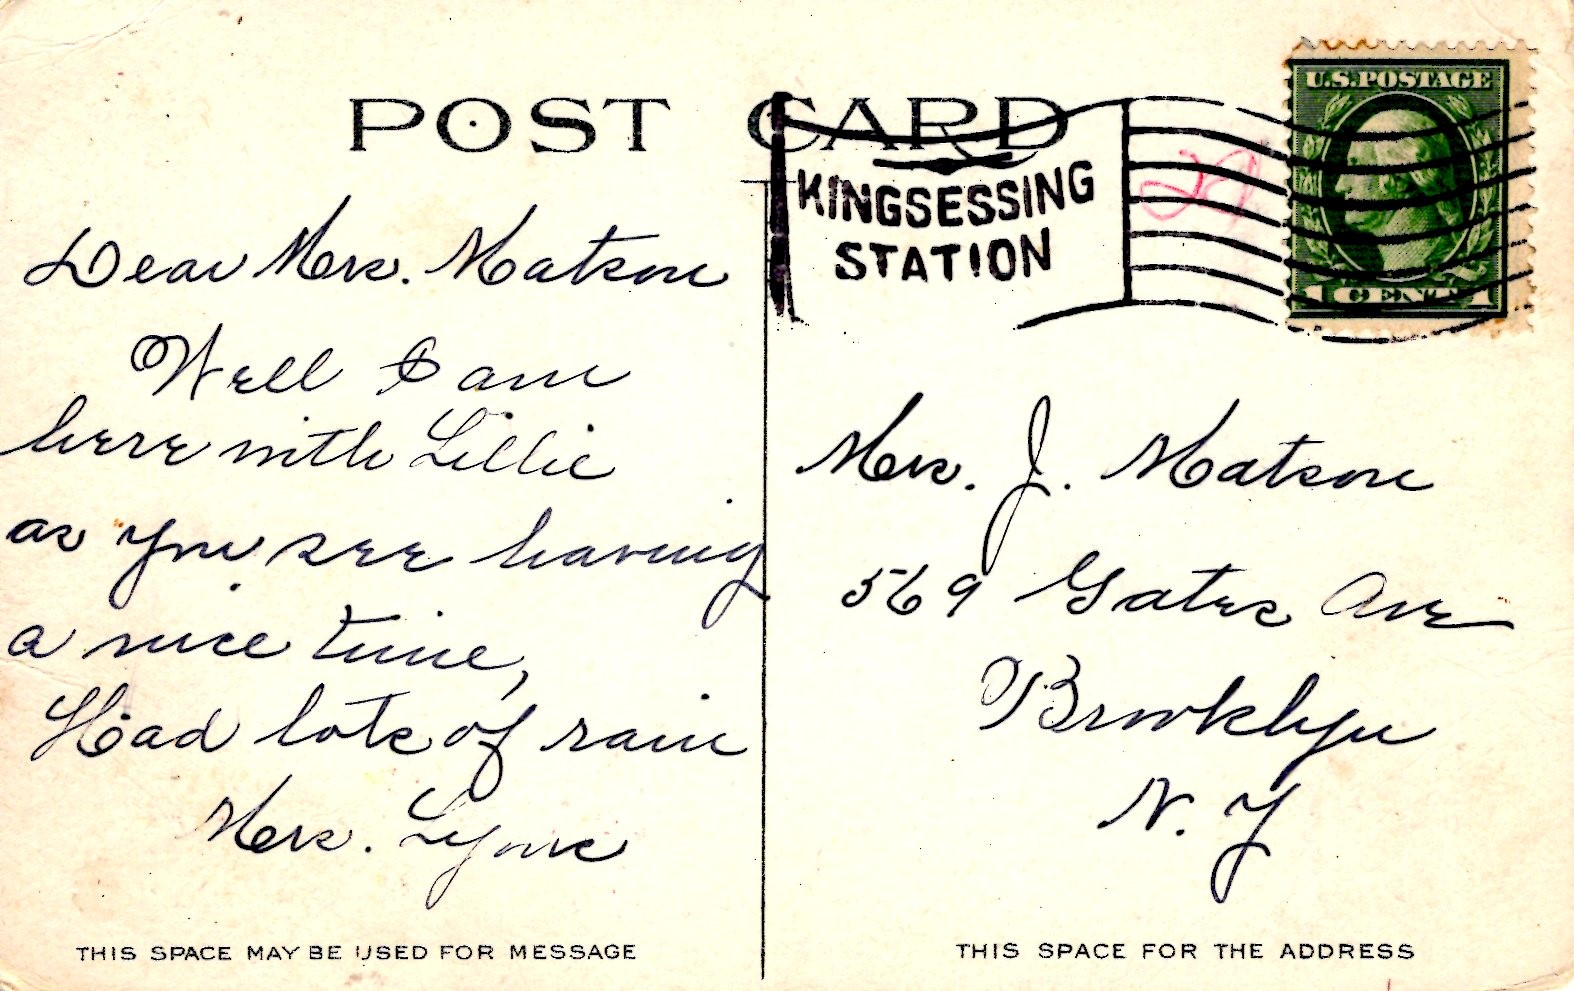 POST CARD
U.S.POSTAGE
1 CENT 1
KINGSESSING
STATION
Dear Mrs. Matson
Well I am
here with Lillie
as you see having
a nice time,
Had lots of rain
Mrs. Lyons
Mrs. J. Matson
569 Gates Ave
Brooklyn
N. Y
THIS SPACE MAY BE USED FOR MESSAGE
THIS SPACE FOR THE ADDRESS